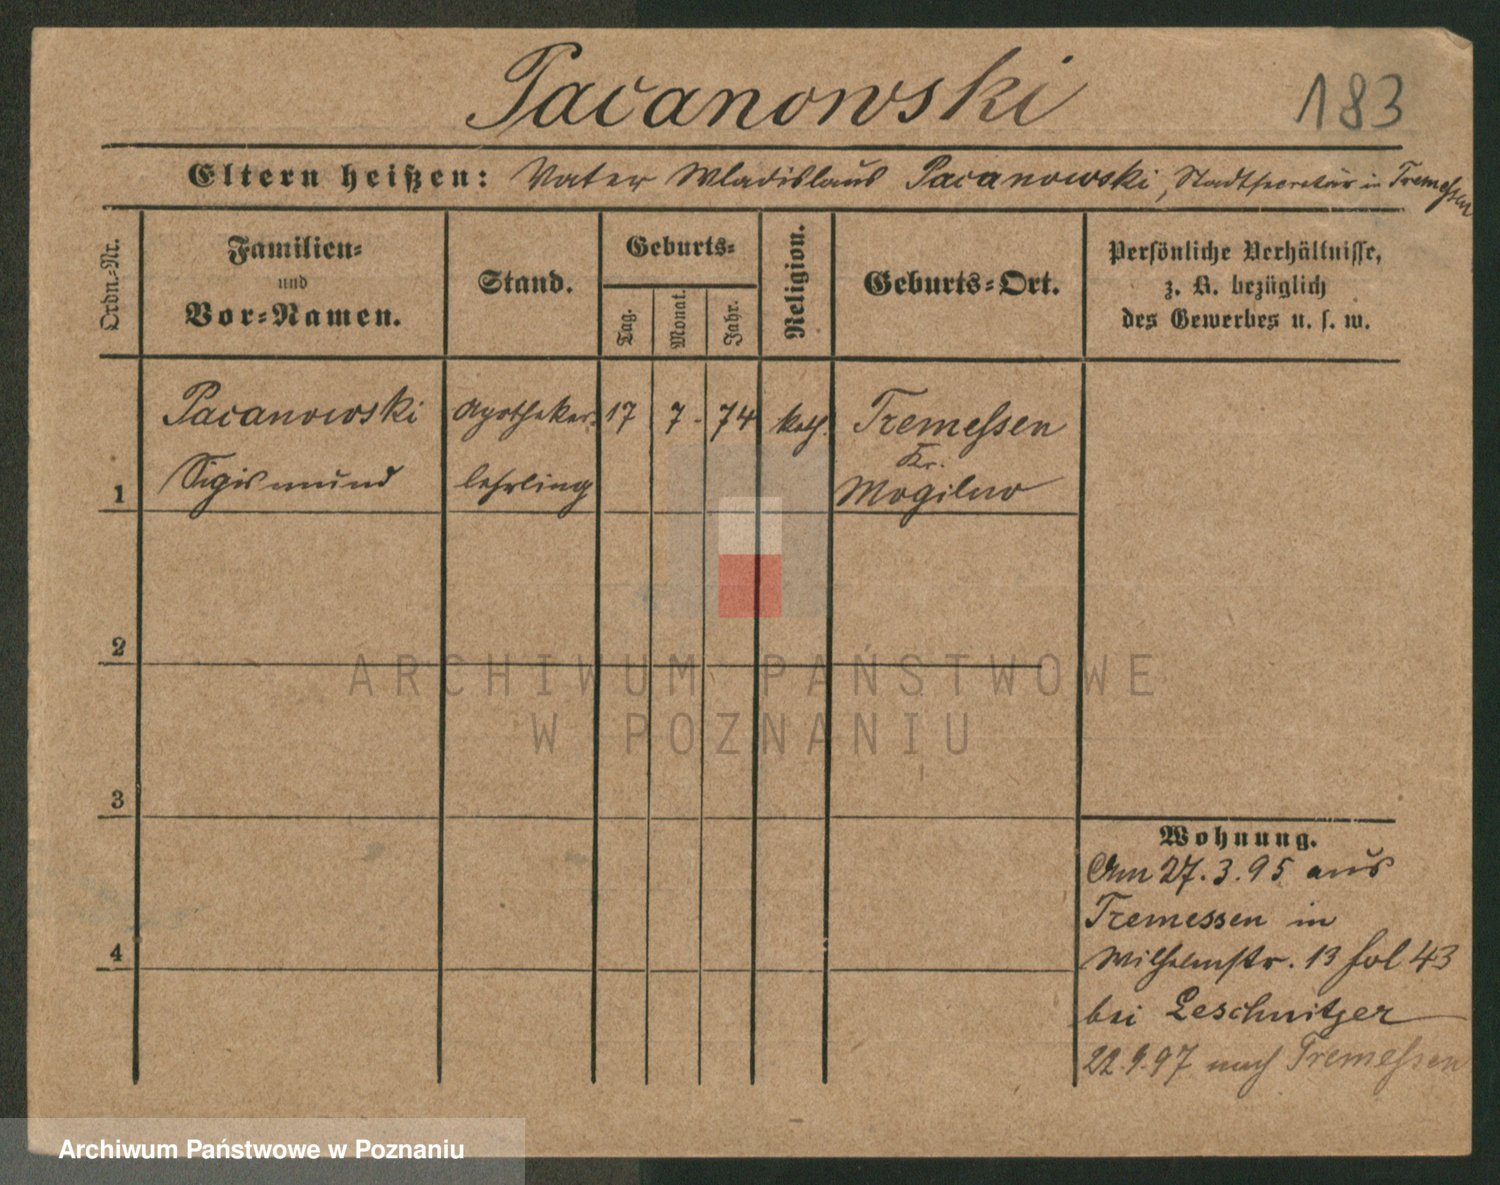 Pacanowski
183
Eltern heißen: Vater Wladislaus Pacanowski, Stadtsecretär in Tremessen
Ordn.-Nr.
Familien-
und
Vor-Namen.
Stand.
Geburts-
Tag.
Monat.
Jahr.
Religion.
Geburts-Ort.
Persönliche Verhältnisse,
z. B. bezüglich
des Gewerbes u. s. w.
Pacanowski Apotheker- 17 7. 74 kath. Tremessen
Kr.
1 Sigismund lehrling Mogilno
2
ARCHIWUM PAŃSTWOWE
W POZNANIU
3
Wohnung.
Am 27.3.95 aus
Tremessen in
4 Wilhelmstr. 13 fol 43
bei Leschnitzer
22.9.97 nach Tremessen
Archiwum Państwowe w Poznaniu